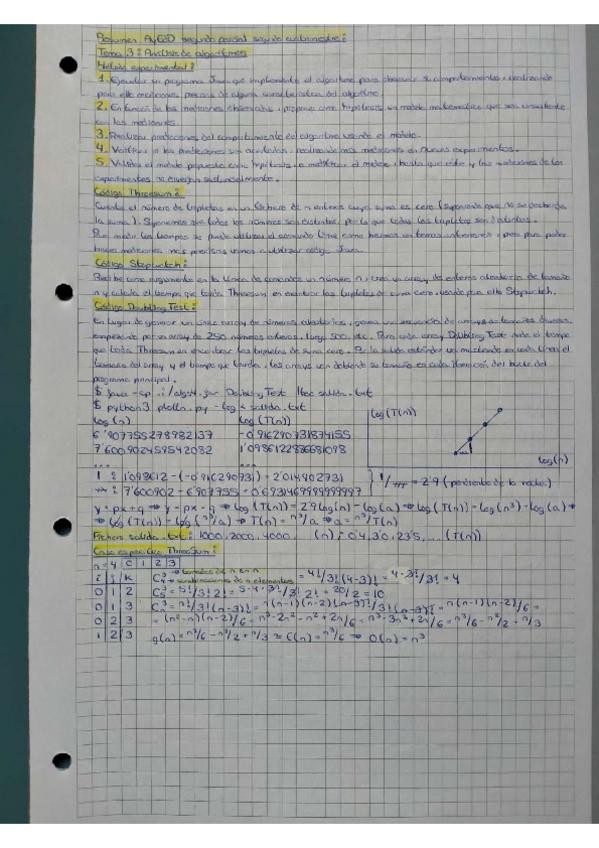 Resumen AyED segundo parcial segundo cuatrimestre:
Tema 3: Análisis de algoritmos
Método experimental:
1. Ejecutar un programa Java que implementa el algoritmo para observar su comportamiento, realizando
para ello mediciones precisas de alguna característica del algoritmo.
2. En función de las mediciones observadas, proponer como hipótesis un modelo matemático que sea consistente
con las mediciones.
3. Realizar predicciones del comportamiento del algoritmo usando el modelo.
4. Verificar si las predicciones son acertadas, realizando más mediciones en nuevos experimentos.
5. Validar el modelo propuesto como hipótesis, o modificar el modelo, hasta que éste y las mediciones de los
experimentos no diverjan sustancialmente.
Código Threesum:
Cuenta el número de tripletas en un fichero de n enteros cuya suma es cero (suponiendo que no se desborda
la suma). Suponemos que todos los números son distintos, por lo que todas las tripletas son distintas.
Para medir los tiempos se puede utilizar el comando time como hacíamos en temas anteriores, pero para poder
hacer mediciones más precisas vamos a utilizar código Java.
Código Stopwatch:
Recibe como argumento en la línea de comandos un número n, crea un array de enteros aleatorio de tamaño
n y calcula el tiempo que tarda Threesum en encontrar las tripletas de suma cero, usando para ello Stopwatch.
Código Doubling Test:
En lugar de generar un único array de números aleatorios, genera una secuencia de arrays de tamaños diversos,
empezando por un array de 250 números enteros, luego 500, etc. Para cada array Doubling Test mide el tiempo
que tarda Threesum en encontrar las tripletas de suma cero. Por la salida estándar va mostrando en cada línea el
tamaño del array y el tiempo que tarda, los arrays van doblando su tamaño en cada iteración del bucle del
programa principal.
$ java -cp .:/algs4.jar Doubling Test | tee salida.txt
$ python3 plotta.py -log < salida.txt
log(n) log(T(n))
6'907755278982137 -0'916290731874155
7'600902459542082 1'0986122886681098
... ...
log(T(n))
log(n)
1: 1'098612-(-0'916290731) = 2'014902731
7'600902-6'907755 = 0'6931469999999997
= 2'9 (pendiente de la recta)
y = px+q ⇒ y-px=q ⇒ log(T(n)) = 2'9log(n)-log(a) ⇒ log(T(n)) = log(n³)-log(a) ⇒
⇒ log(T(n)) = log(n³/a) ⇒ T(n) = n³/a ⇒ a = n³/T(n)
Fichero salida.txt: 1000, 2000, 4000, (n); 0'4, 3'0, 23'5, ... (T(n))
Caso específico ThreeSum:
n=4 0 1 2 3
i j k
0 1 2
0 1 3
0 2 3
1 2 3
C₄³ = 4!/3!(4-3)! = 4·3!/3! = 4
C₅³ = 5!/3!2! = 5·4·3!/3!2! = 20/2 = 10
Cₙ³ = n!/3!(n-3)! = n(n-1)(n-2)(n-3)!/3!(n-3)! = n(n-1)(n-2)/6 =
= (n²-n)(n-2)/6 = n³-2n²-n²+2n/6 = n³-3n²+2n/6 = n³/6-n²/2+n/3
g(n) = n³/6-n²/2+n/3 ≈ t(n) = n³/6 ⇒ O(n) = n³